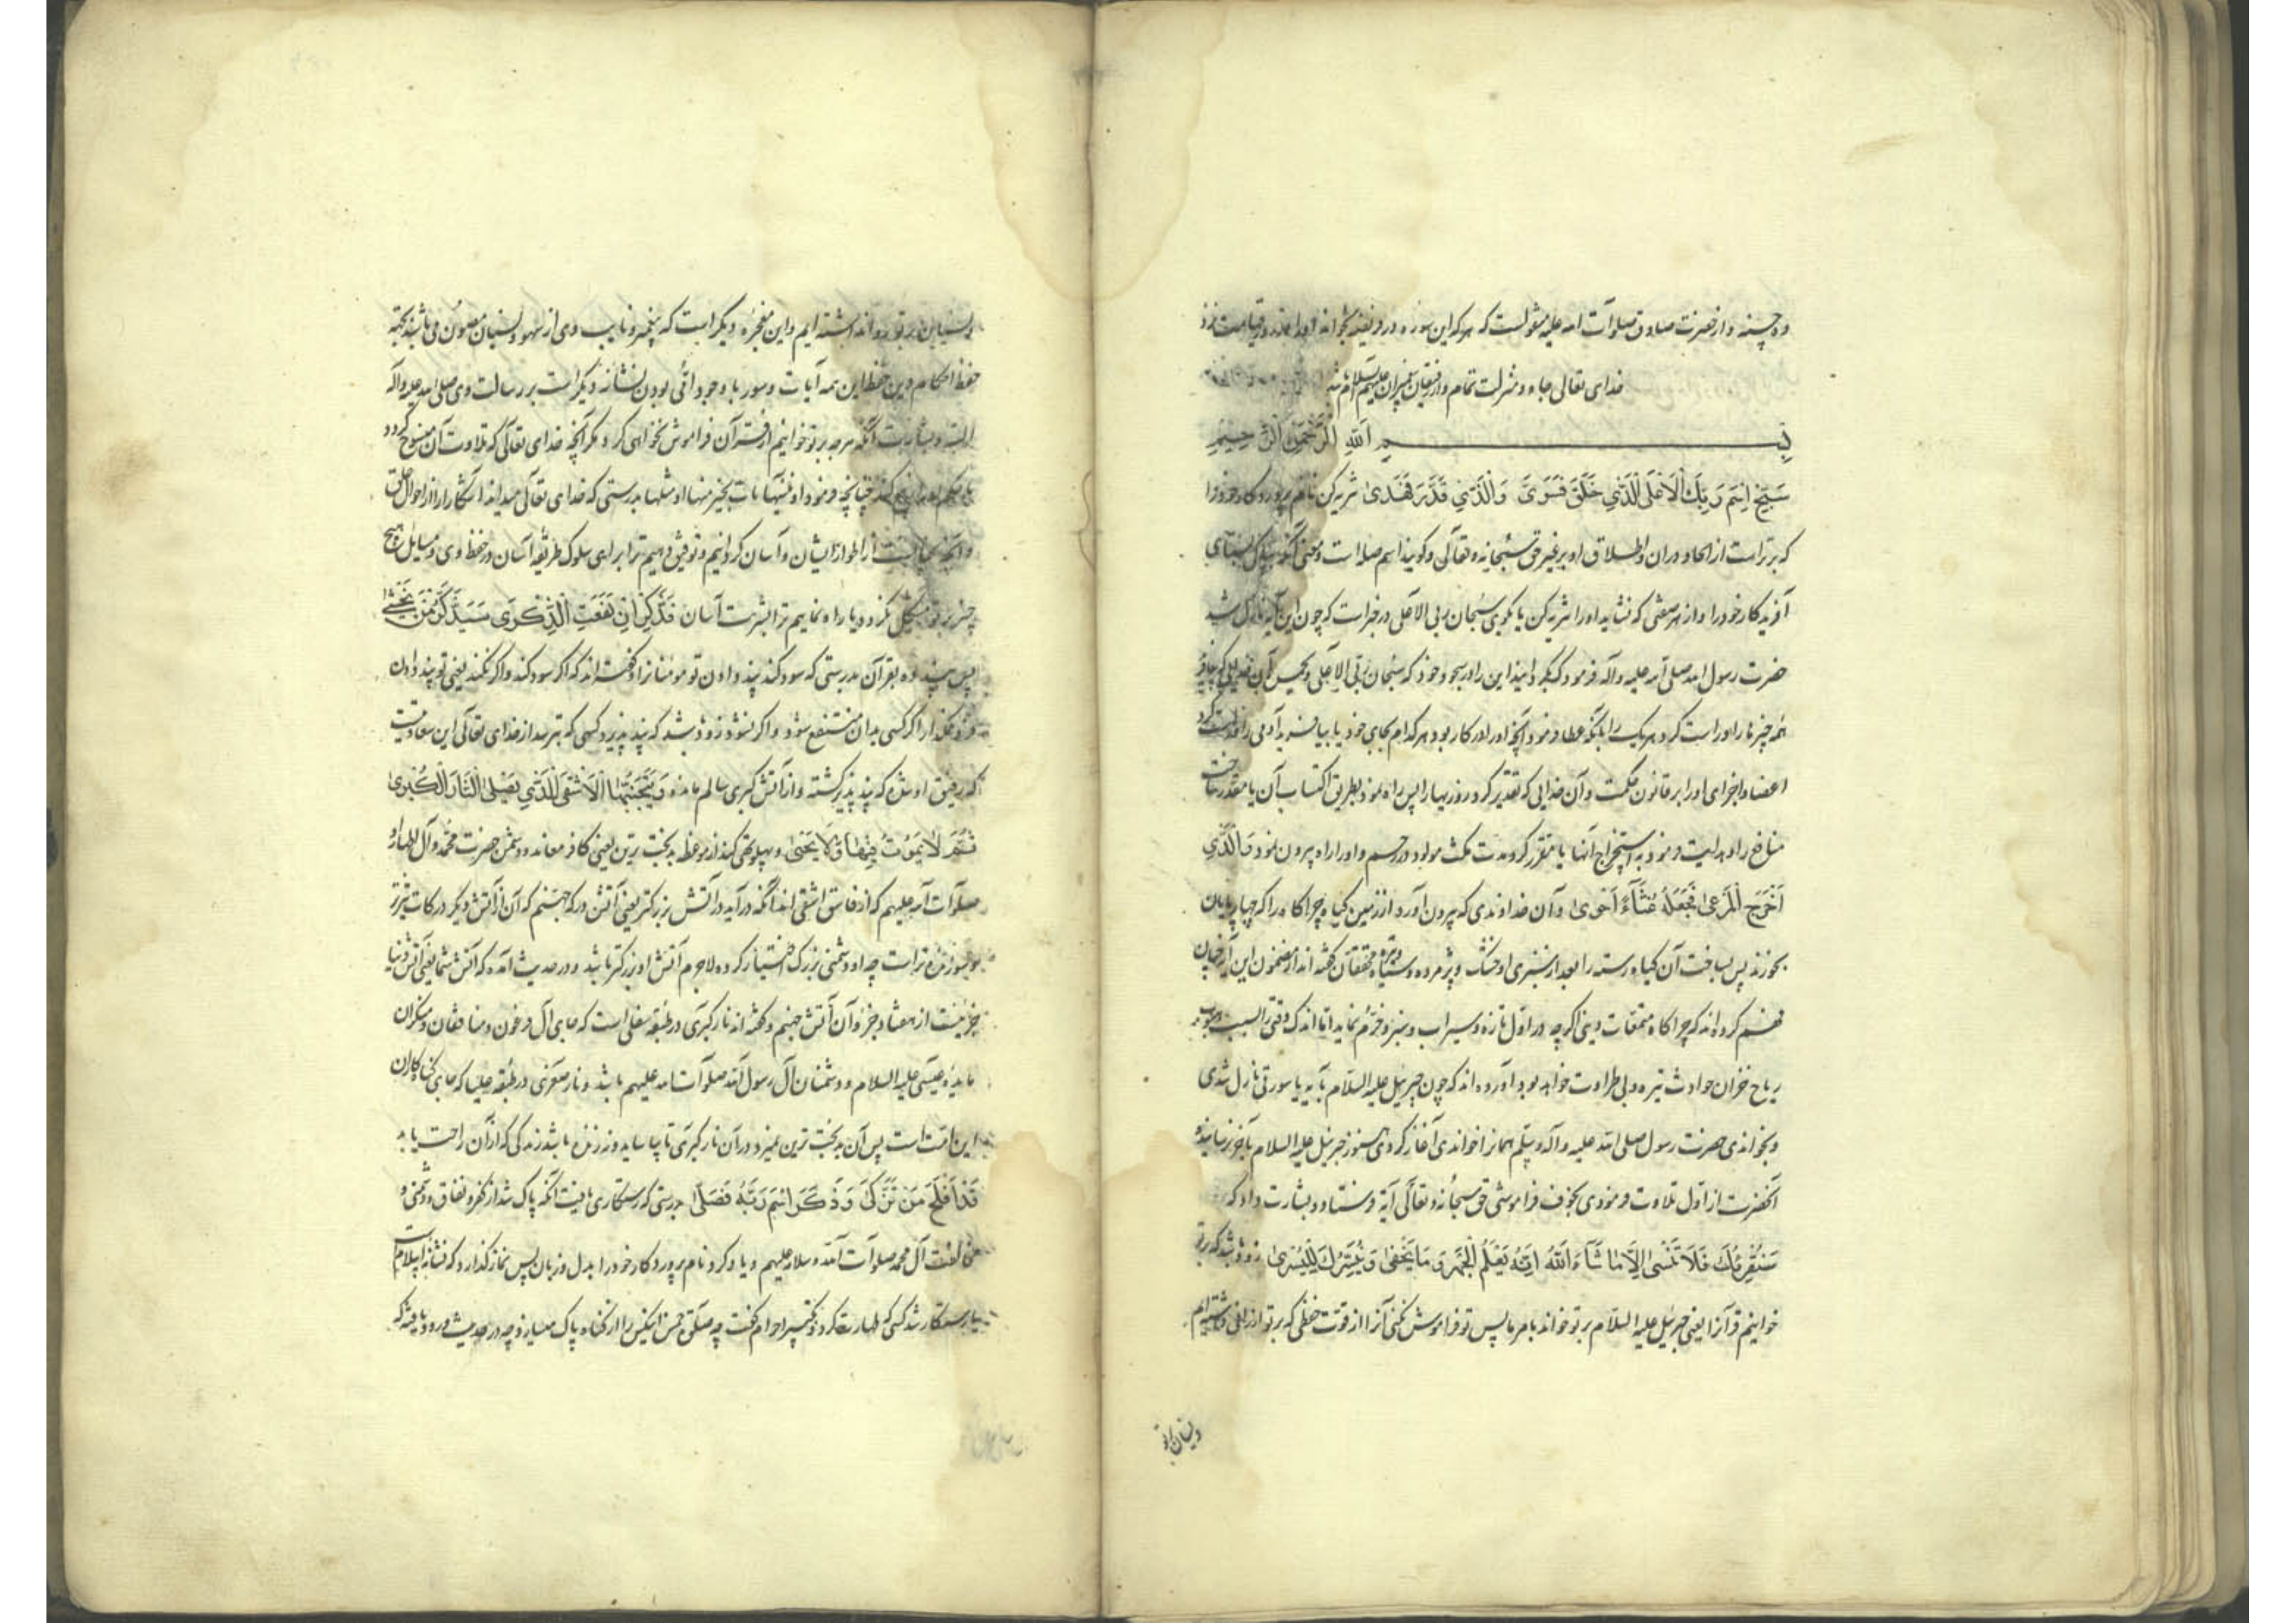 ده حسنه و از حضرت صادق صلوات الله علیه منقولست که هر که این سوره در فریضه بخواند او را در قیامت نزد
خدای تعالی جاه و منزلت تمام و از رفیقان پیغمبران علیهم السلام باشد
بسم الله الرحمن الرحیم
سَبِّحِ اسْمَ رَبِّكَ الْاَعْلَى الَّذِي خَلَقَ فَسَوَّى وَالَّذِي قَدَّرَ فَهَدَى تنزیه کن نام پروردگار خود را
که برتر است از الحاد در آن و اطلاق او بر غیر حق سبحانه و تعالی و گویند اسم صله است و معنی آنکه بپاکی بستای
آفریدگار خود را و از هر صفتی که نشاید او را تنزیه کن یا بگوی سبحان ربی الاعلی در خبر است که چون این آیه نازل شد
حضرت رسول الله صلی الله علیه و آله فرمود که بگردانید این را در سجود خود که سبحان ربی الاعلی و
همه چیزها را و راست کرد هر یک را بآنکه عطا فرمود آنچه او را در کار بود هر کدام بجای خود یا بیافرید آدمی را و راست کرد
اعضا و اجزای او را بر قانون حکمت و آن خدایی که تقدیر کرد روزیها را پس راه نمود بطریق اکتساب آن یا مقدر ساخت
منافع را و هدایت فرمود به استخراج آنها یا مقرر کرد مدت مکث مولود در رحم و او را راه بیرون نمود وَالَّذِي
اَخْرَجَ الْمَرْعَى فَجَعَلَهُ غُثَاءً اَحْوَى و آن خداوندی که بیرون آورد از زمین گیاه چراگاه را که چهارپایان
بخورند پس ساخت آن گیاه رسته را بعد از سبزی او خشک و پژمرده و سیاه و تیره محققان گفته اند از مضمون این آیه چنان
فهم کرده اند که چراگاه متمتعات دینی اگرچه در اول تازه و سیراب و سبز و خرم نماید اما اندک وقتی را بسبب هبوب
ریاح خزان حوادث تیره و بی طراوت خواهد بود آورده اند که چون جبرئیل علیه السلام بآیه یا سورتی نازل شدی
و بخواندی حضرت رسول صلی الله علیه و آله و سلم همانرا خواندی آغاز کردی هنوز جبرئیل علیه السلام بآخر نرسانیده
آنحضرت از اول تلاوت فرمودی بخوف فراموشی حق سبحانه و تعالی آیة فرستاد و بشارت داد که
سَنُقْرِئُكَ فَلَا تَنْسَى اِلَّا مَا شَاءَ اللهُ اِنَّهُ يَعْلَمُ الْجَهْرَ وَ مَا يَخْفَى وَ نُيَسِّرُكَ لِلْيُسْرَى زود باشد که بر تو
خوانیم قرآنرا یعنی جبرئیل علیه السلام بر تو خواند بامر ما پس تو فراموش نکنی آنرا از قوت حفظی که بر تو ارزانی داشته ایم
و نسیان بر تو
و نسیان بر تو روا نداشته ایم و این معجزه دیگر است که پیغمبر و نایب وی از سهو و نسیان مصون می باشند بجهة
حفظ احکام دین حفظ این همه آیات و سور با وجود امی بودن نشانه دیگر است بر رسالت وی صلی الله علیه و آله
البته و بشارت آنکه هر چه بر تو خوانیم از قرآن فراموش نخواهی کرد مگر آنچه خدای تعالی که تلاوت آن منسوخ گردد
چنانچه فرمود او ننسها نات بخیر منها او مثلها بدرستی که خدای تعالی میداند آشکارا را از احوال خلق
و آنچه پنهانیست از اطوار ایشان و آسان گردانیم و توفیق دهیم ترا برای سلوک طریقه آسان در حفظ وحی و مسایل هیچ
چیز بر تو مشکل نگردد یا راه نماییم ترا بشریعت آسان فَذَكِّرْ اِنْ نَفَعَتِ الذِّكْرَى سَيَذَّكَّرُ مَنْ يَخْشَى
پس پند ده بقرآن بدرستی که سود کند پند دادن تو مومنانرا و گفته اند که اگر سود کند و اگر نکند یعنی تو پند دادن
فرو مگذار اگر کسی بدان منتفع شود و اگر نشود زود باشد که پند پذیرد کسی که بترسد از خدای تعالی این سعادتیست
که رفیق او شده که پند پذیر گشته و از آتش کبری سالم مانده وَ يَتَجَنَّبُهَا الْاَشْقَى الَّذِي يَصْلَى النَّارَ الْكُبْرَى
ثُمَّ لَا يَمُوتُ فِيهَا وَلَا يَحْيَى و پهلو تهی کند از موعظه بدبخت ترین یعنی کافر معاند و دشمن حضرت محمد و آل اطهار او
صلوات الله علیهم که از فاسق اشقی اند آنکه درآید در آتش بزرگتر یعنی آتش درکه جهنم که آن از آتش دیگر درکات تیزتر
و سوزنده تر است چه او دشمنی بزرگ اختیار کرده لاجرم آتش او بزرگتر باشد و در حدیث آمده که آتش شما یعنی آتش دنیا
جزئیست از هفتاد جزو آن آتش جهنم و گفته اند نار کبری در طبقه سفلی است که جای آل فرعون و منافقان و منکران
مایده عیسی علیه السلام و دشمنان آل رسول الله صلوات الله علیهم باشد و نار صغری در طبقه علیا که جای گناه کاران
این امتست پس آن بدبخت ترین نمیرد در آن نار کبری تا بیاساید و نه زنده باشد زندگی که از آن راحت یابد
قَدْ اَفْلَحَ مَنْ تَزَكَّى وَ ذَكَرَ اسْمَ رَبِّهِ فَصَلَّى بدرستی که رستگاری یافت آنکه پاک شد از کفر و نفاق و دشمنی و
مخالفت آل محمد صلوات الله و سلامه علیهم و یاد کرد نام پروردگار خود را بدل و زبان پس نماز گذارد که نشانه اسلامست
یا رستگار شد کسی که طهارت کرد و تکبیر احرام گفت چه صلوة خمس این کس را از گناه پاک میسازد چه در حدیث ورود یافته که